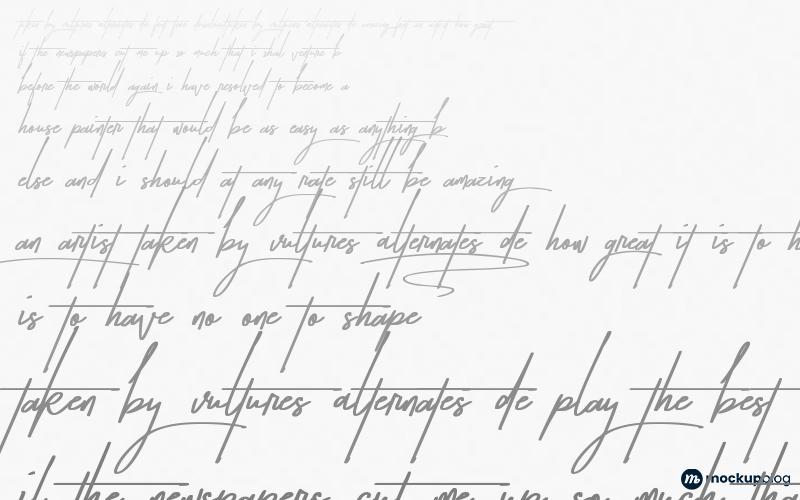 taken by vultures alternates de
if the newspapers cut me up so much that i shal venture b
before the world again i have resolved to become a
house painter that would be as easy as anything b
else and i should at any rate still be amazing
an artist taken by vultures alternates de how great it is to h
is to have no one to shape
taken by vultures alternates de play the best
if the newspapers cut me up so much tha
mockupblog